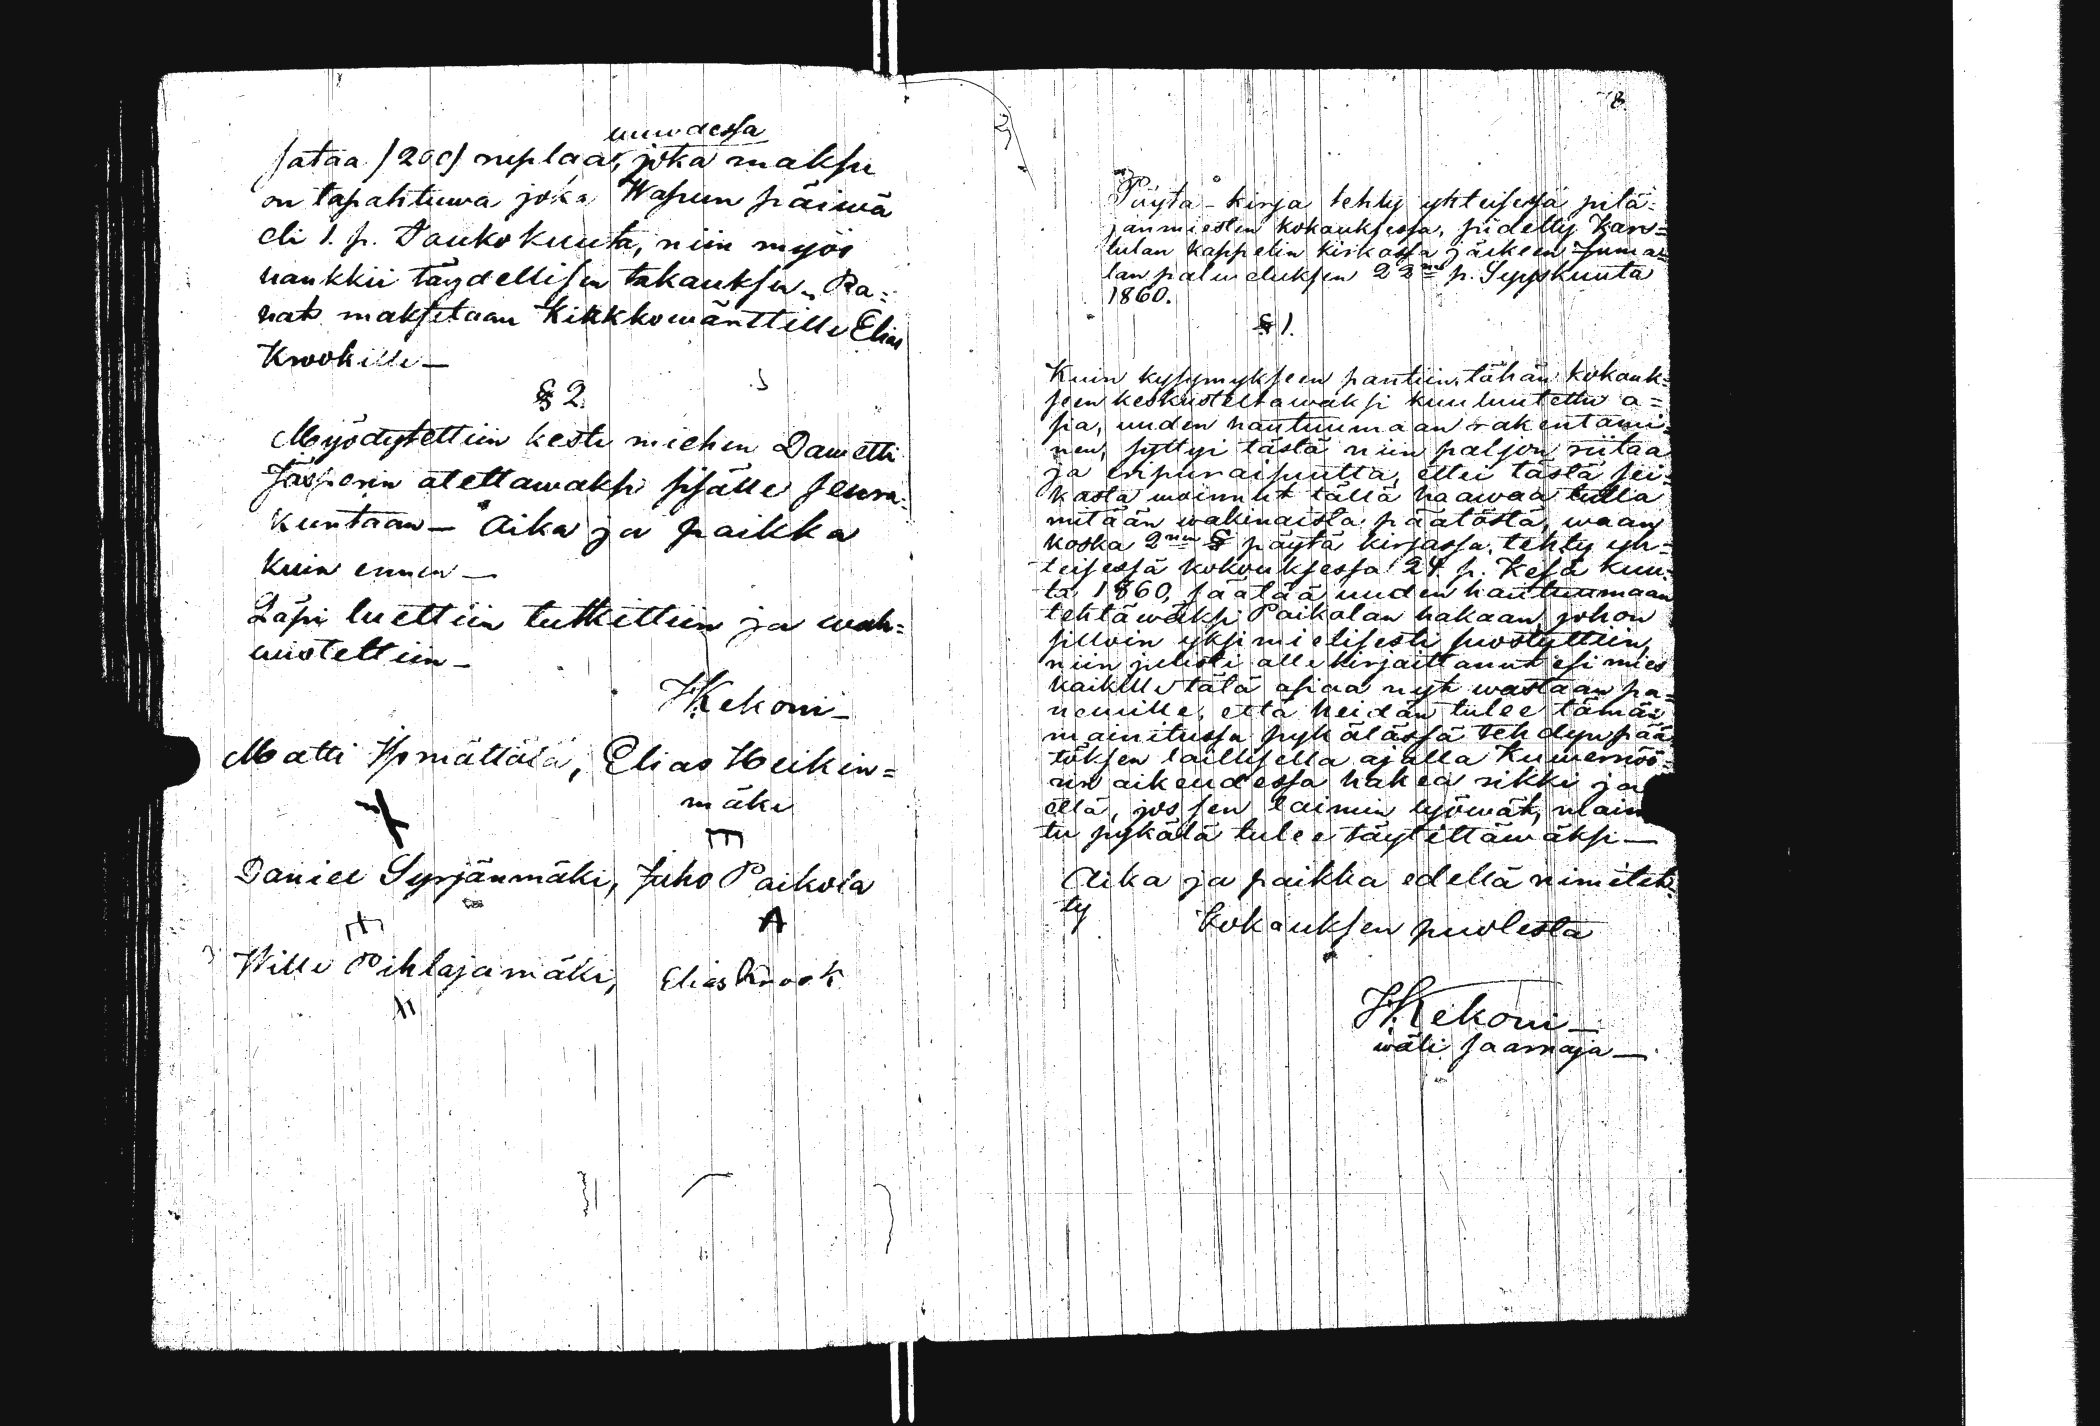 wuodessa
sataa /200/ ruplaa, joka maksu
on tapahtuwa joka Wapun päiwä
eli 1. p. Toukokuuta, niin myös
hankkii täydellisen takauksen. Ra=
hat maksetaan Kirkkowänttille Elias
Krookille—
§ 2.
Myödytettiin kesti miehen
Jäsperin otettawaksi sisälle seura=
kuntaan— Aika ja paikka
kuin ennen—
Läpi luettiin tutkittiin ja wah=
wistettiin—
HKekoni—
Matti Ypmättölä, Elias Heikin=
mäki
Daniel Syrjänmäki, Juho Paikola
Wille Pihlajamäki, Elias Krook
8.
Pöytä-kirja tehty yhteisessä pitä=
jänmiesten kokouksessa, pidetty Kars=
tulan kappelin kirkossa jälkeen Juma=
lan palweluksen 23 p. Syyskuuta
1860.
§ 1.
Kuin kysymykseen pantiin, tähän kokouk=
seen keskusteltawaksi kuuluutettu a=
sia, uuden hautuumaan rakentami=
nen, syttyi tästä niin paljon riitaa
ja eripuraisuutta, ettei tästä sei=
kasta woinnut tällä haawaa tulla
mitään wakinaista päätöstä, waan
koska 2nen § pöytä kirjassa, tehty yh=
teisessä kokouksessa 24 p. Kesä kuu=
ta 1860, säätää uuden hautuumaan
tehtäwäksi Paikolan hakaan, johon
silloin yksimielisesti suostuttiin,
niin julisti allekirjoittanut esimies
kaikille tätä asiaa nyt wastaan pa=
neuille, että heidän tulee tämän
mainitussa pykälässä tehdyn pää
töksen laillisella ajalla Kuwernöö=
rin oikeudessa hakea rikki ja
että, jos sen laimin lyöwät, main
tu pykälä tulee täytettäwäksi—
Aika ja paikka edellä nimitet=
ty
Kokouksen puolesta
HKekoni—
wäli saarnaja—